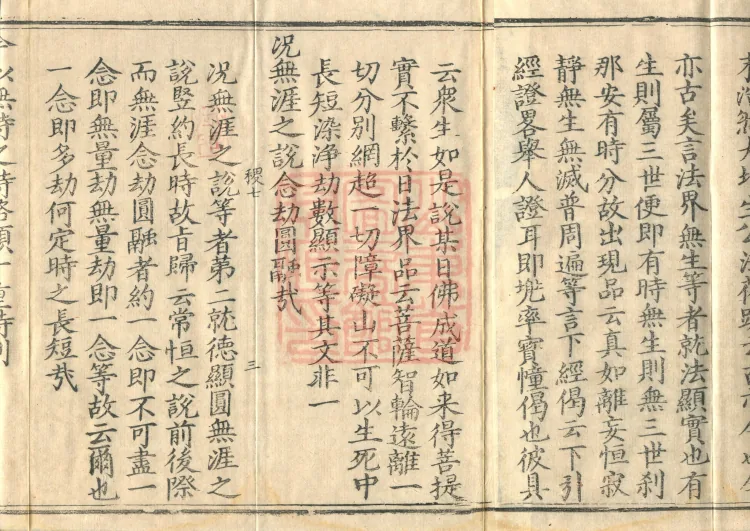 亦古矣言法界無生等者就法顯實也有
生則屬三世便即有時無生則無三世刹
那安有時分故出現品云真如離妄恒寂
靜無生無滅普周遍等言下經偈云下引
經證畧舉人證耳即兠率寶幢偈也彼具
云衆生如是說某日佛成道如来得菩提
實不繫於日法界品云菩薩智輪遠離一
切分别網超一切障礙山不可以生死中
長短染浄劫數顯示等其文非一
况無涯之說念劫圓融哉
稷七
三
况無涯之說等者第二就德顯圓無涯之
說竪約長時故旨歸云常恒之說前後際
而無涯念劫圓融者約一念即不可盡一
念即無量劫無量劫即一念等故云爾也
一念即多劫何定時之長短哉